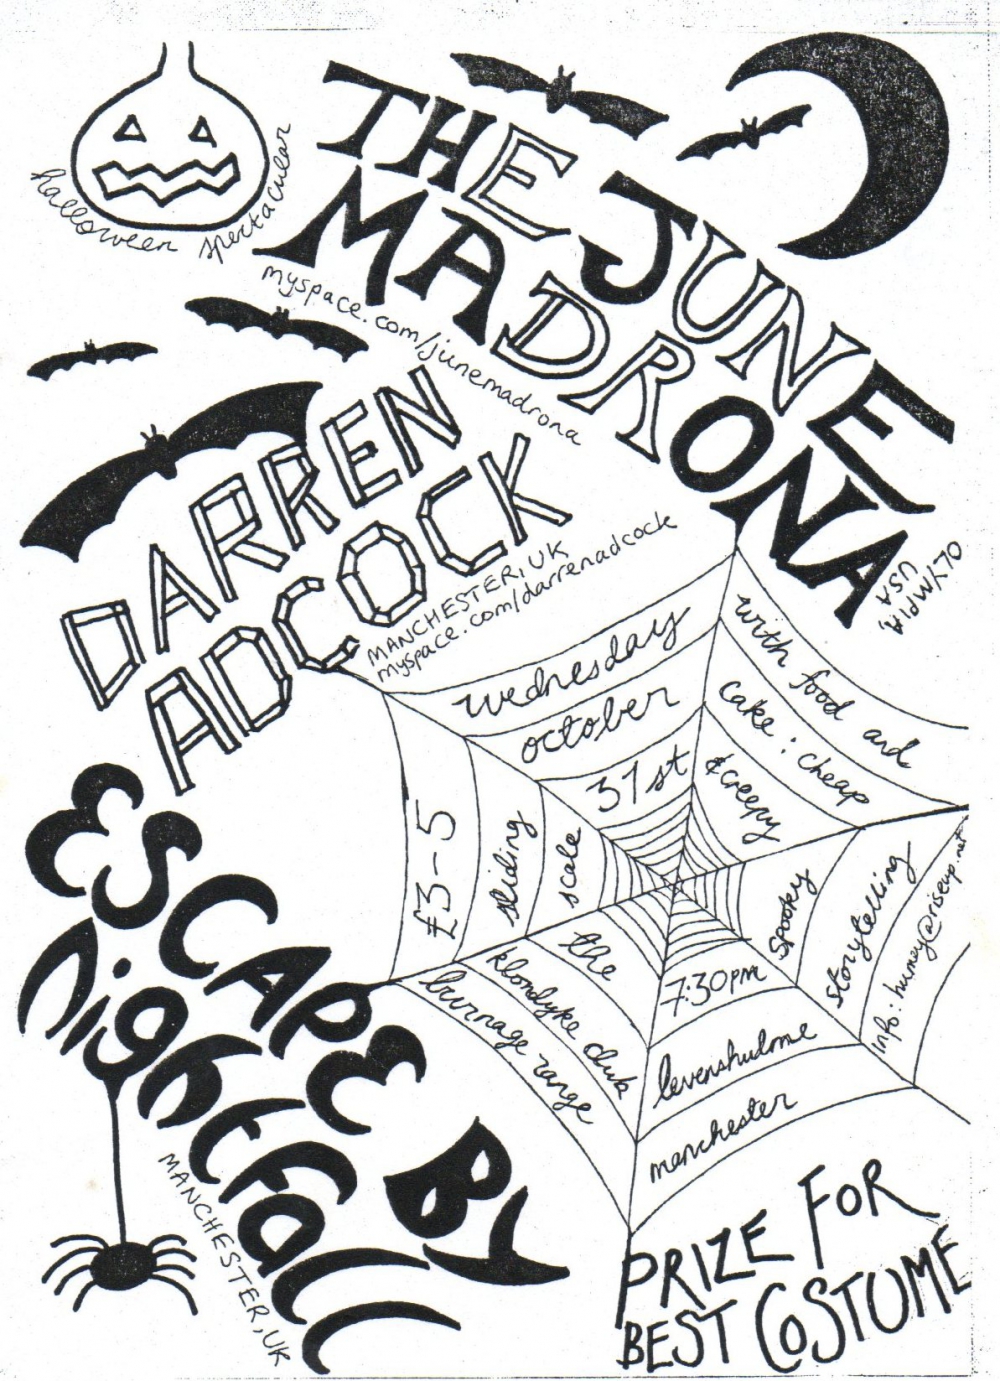 halloween spectacular
THE JUNE
MADRONA
myspace.com/junemadrona
OLYMPIA,
USA
DARREN
ADCOCK
MANCHESTER, UK
myspace.com/darrenadcock
ESCAPE BY
nightfall
MANCHESTER, UK
wednesday
october
31st
with food and
cake : cheap
& creepy
£3-5
sliding
scale
spooky
storytelling
info: humey@riseup.net
the
klondyke club
burnage range
7:30pm
levenshulme
manchester
PRIZE FOR
BEST COSTUME